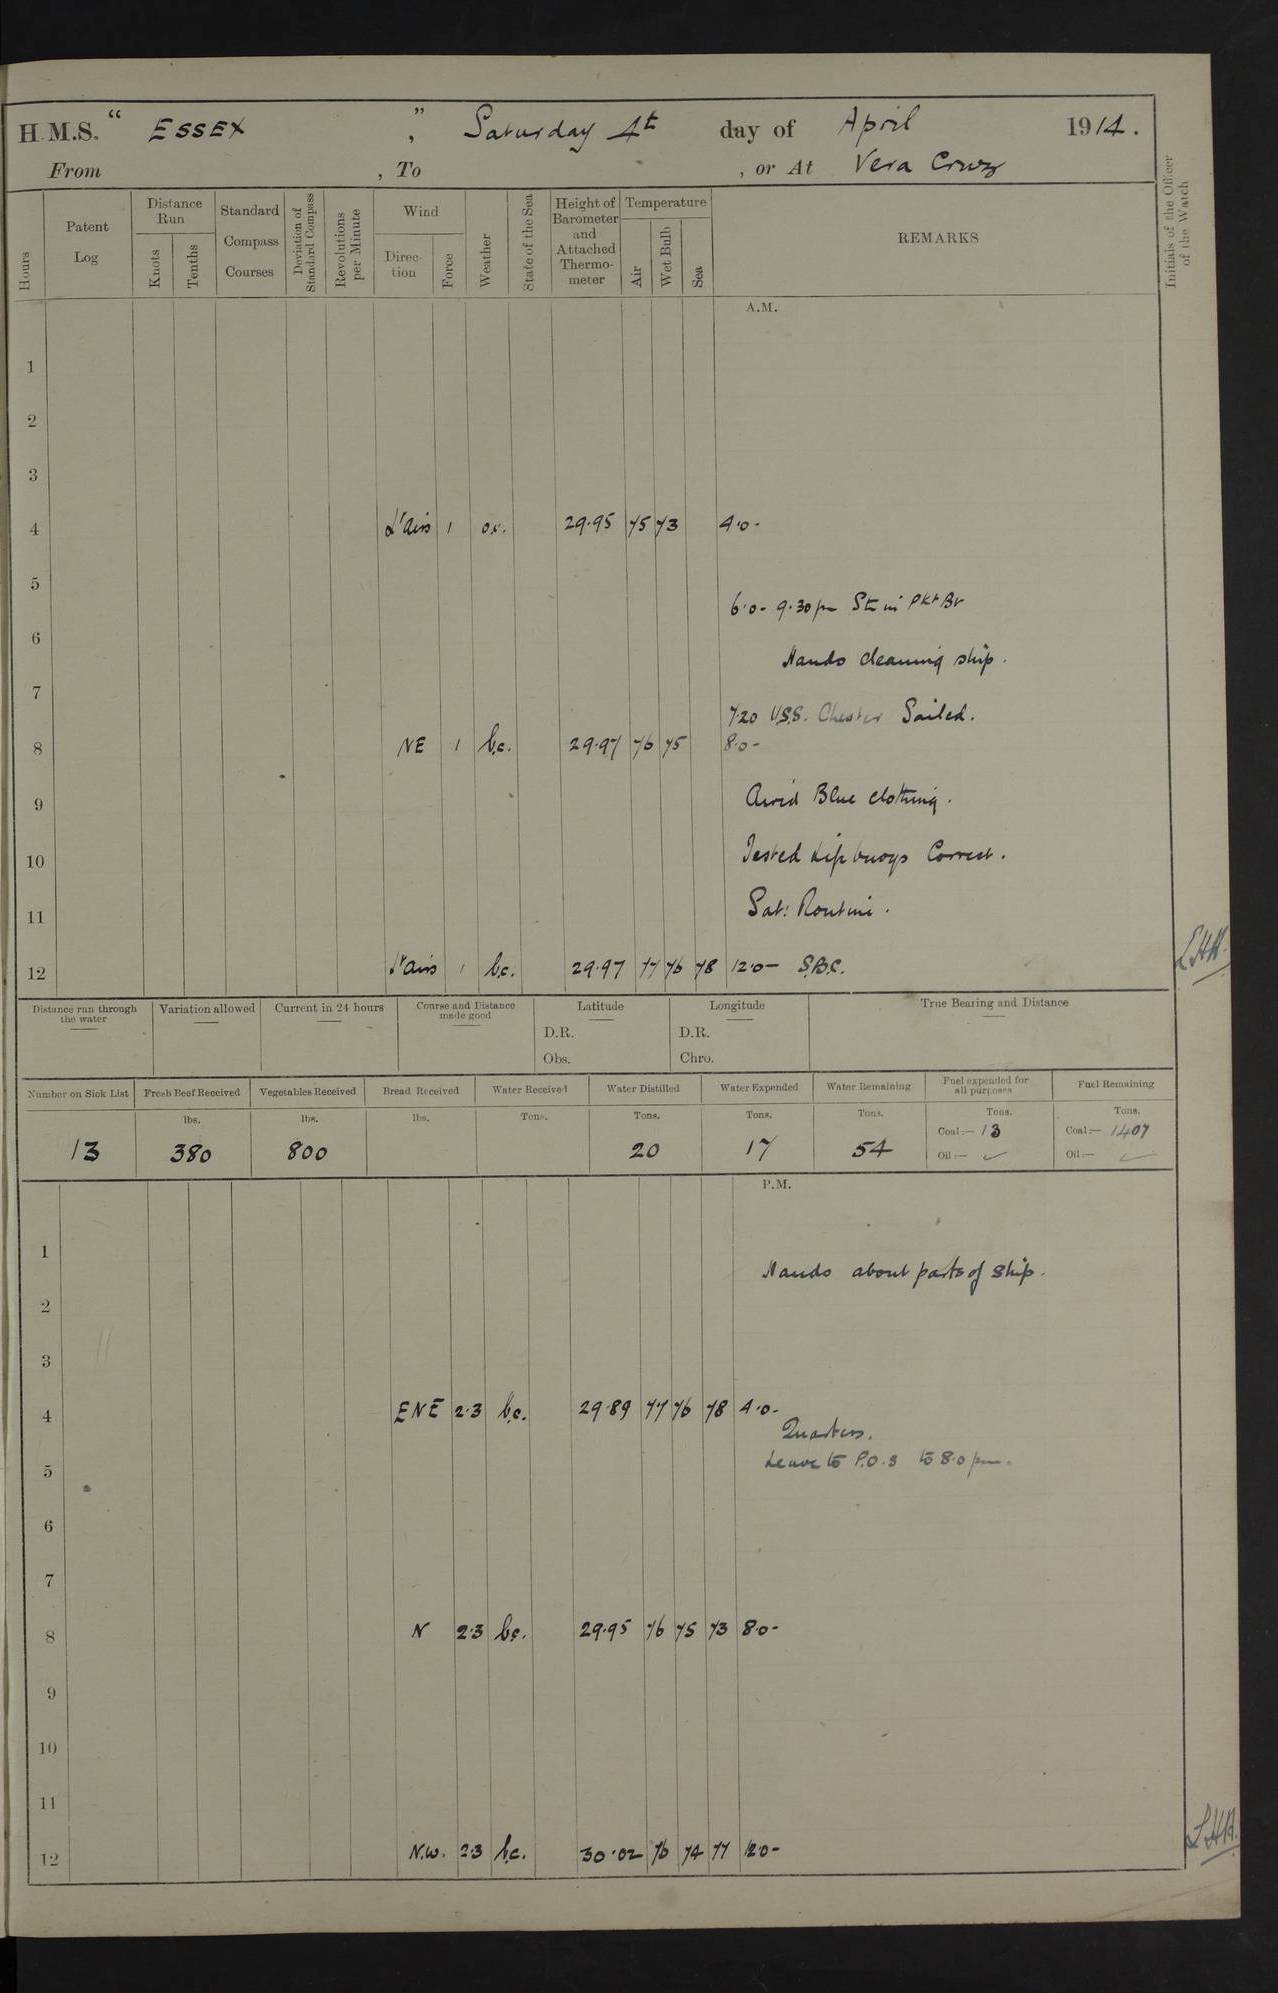 H.M.S. " ESSEX ", Saturday 4th day of April 1914.
From , To , or At Vera Cruz
Hours
Patent Log
Distance Run
Knots
Tenths
Standard Compass Courses
Deviation of Standard Compass
Revolutions per Minute
Wind
Direction
Force
Weather
State of the Sea
Height of Barometer and Attached Thermometer
Temperature
Air
Wet Bulb
Sea
REMARKS
Initials of the Officer of the Watch
A.M.
1
2
3
4 Lt airs 1 29.95 75 73 4.0-
5
6.0- 9.30 pm
6
Hands cleaning ship.
7
7.20 U.S.S. Chester Sailed.
8 NE 1 b.c. 29.97 76 75 8.0-
Aired Blue clothing.
9
Tested Life buoys Correct.
10
Sat: Routine.
11
12 Lt airs 1 b.c. 29.97 77 76 78 12.0- S.B.C.
Distance run through the water
Variation allowed
Current in 24 hours
Course and Distance made good
Latitude
D.R.
Obs.
Longitude
D.R.
Chro.
True Bearing and Distance
Number on Sick List 13
Fresh Beef Received lbs. 380
Vegetables Received lbs. 800
Bread Received lbs.
Water Received Tons.
Water Distilled Tons. 20
Water Expended Tons. 17
Water Remaining Tons. 54
Fuel expended for all purposes Tons.
Coal:— 13
Oil:— ✓
Fuel Remaining Tons.
Coal:— 1407
Oil:— ✓
P.M.
1
Hands about parts of ship.
2
3
4 ENE 2.3 b.c. 29.89 77 76 78 4.0-
Quarters.
Leave to P.O.s to 8.0 pm.
5
6
7
8 N 2.3 b.c. 29.95 76 75 73 8.0-
9
10
11
12 N.W. 2.3 b.c. 30.02 76 74 77 12.0-